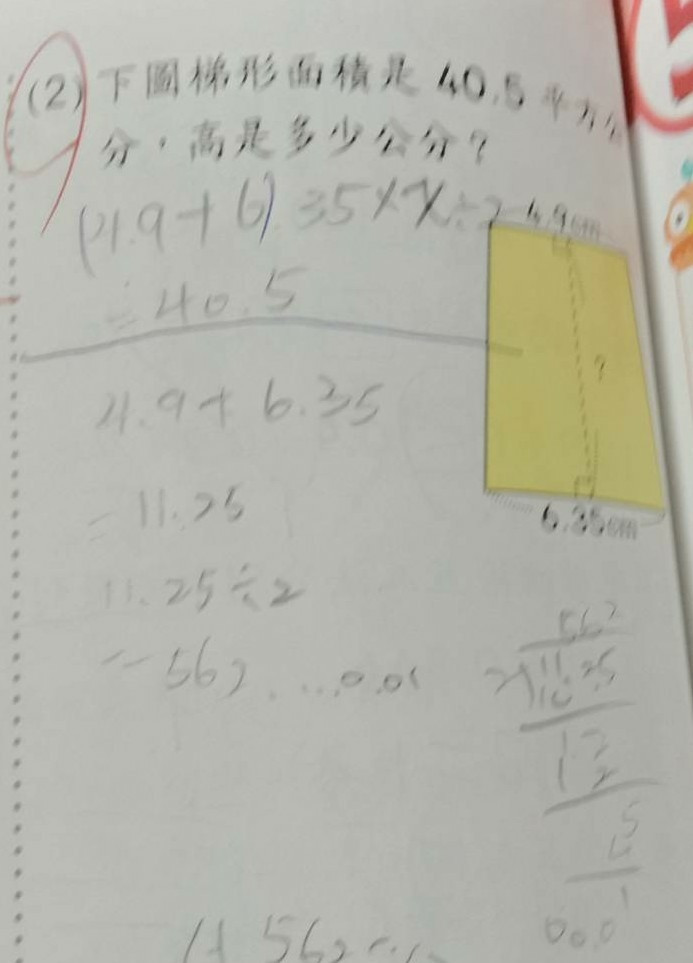 (2) 下圖梯形面積是 40.5 平方公
分，高是多少公分？
(4.9+6.35×x÷2
=40.5
4.9cm
?
6.35cm
4.9+6.35
=11.25
11.25÷2
=562......0.01
562
2 11.25
10
12
12
5
4
1
0.01